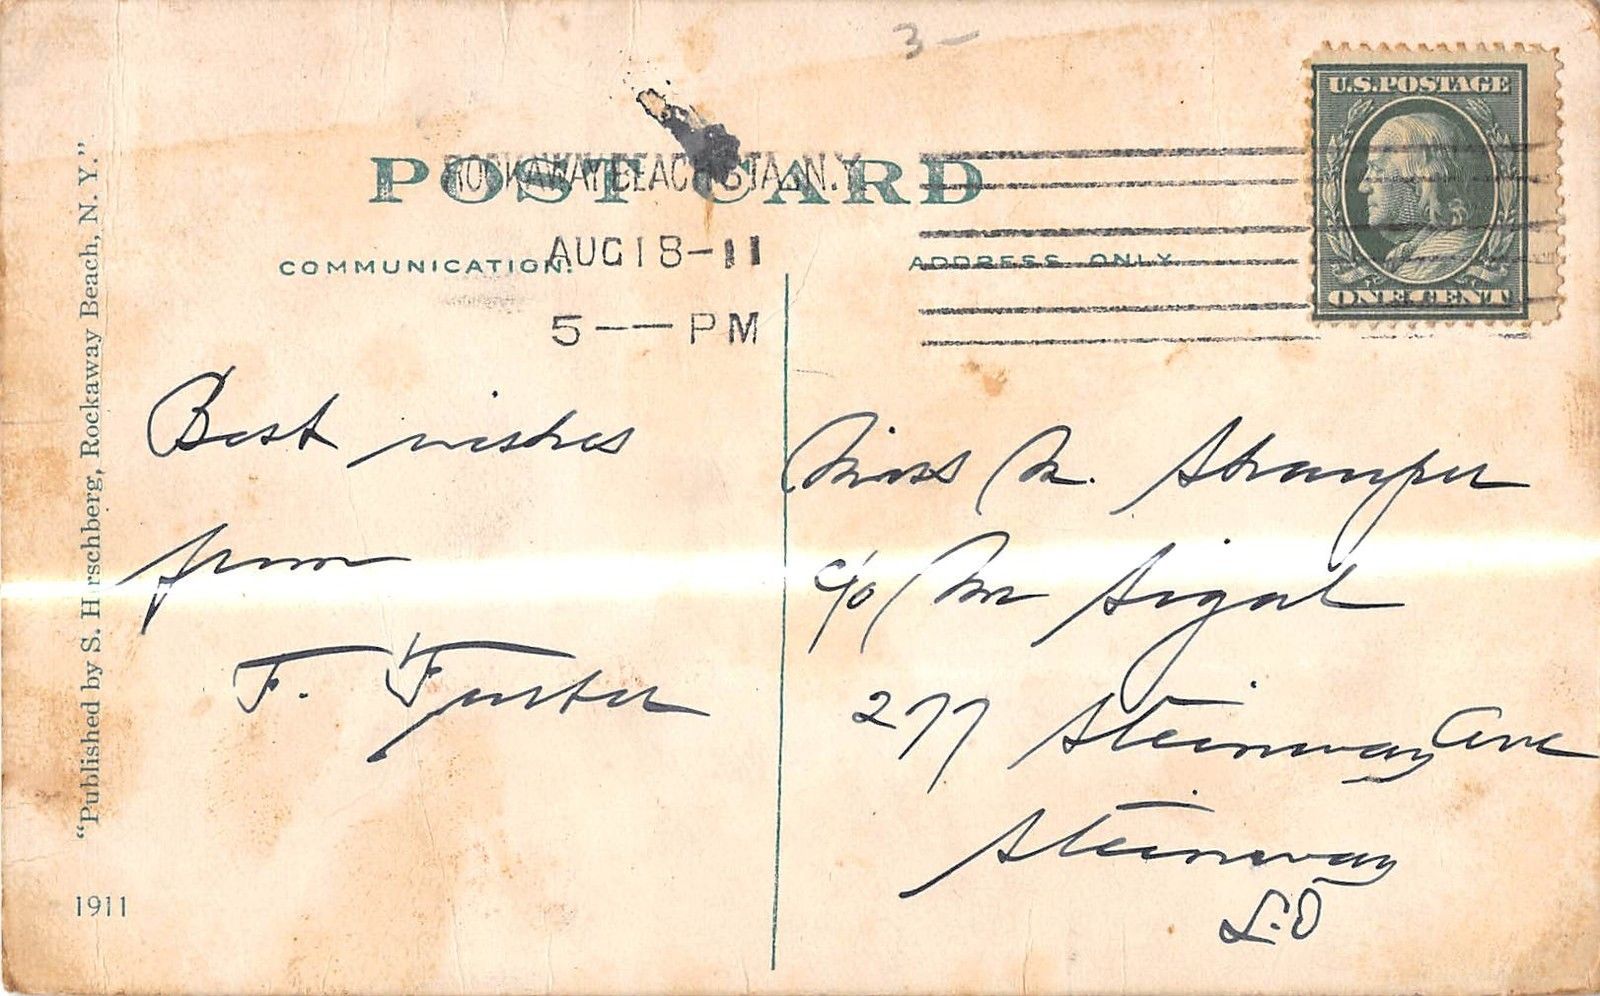 3-
U.S. POSTAGE
ONE CENT
POST CARD
ROCKAWAY BEACH STA. N.Y.
AUG 18-11
5--PM
COMMUNICATION.
ADDRESS ONLY
Best wishes
from
F.
Miss M.
c/o Mr Sigal
277 Steinway Ave
Steinway
"Published by S. Hirschberg, Rockaway Beach, N. Y."
1911